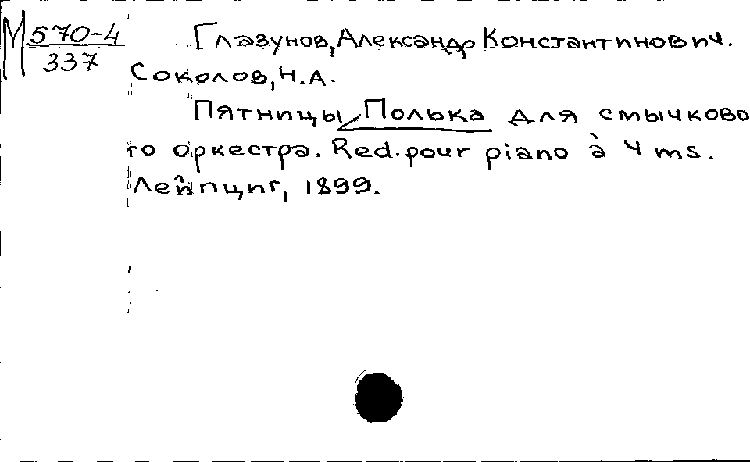 М 570-4
337
Глазунов, Александр Константинович.
Соколов, Н.А.
Пятницы, Полька для смычково
го оркестра. Red. pour piano à 4 ms.
Лейпциг, 1899.